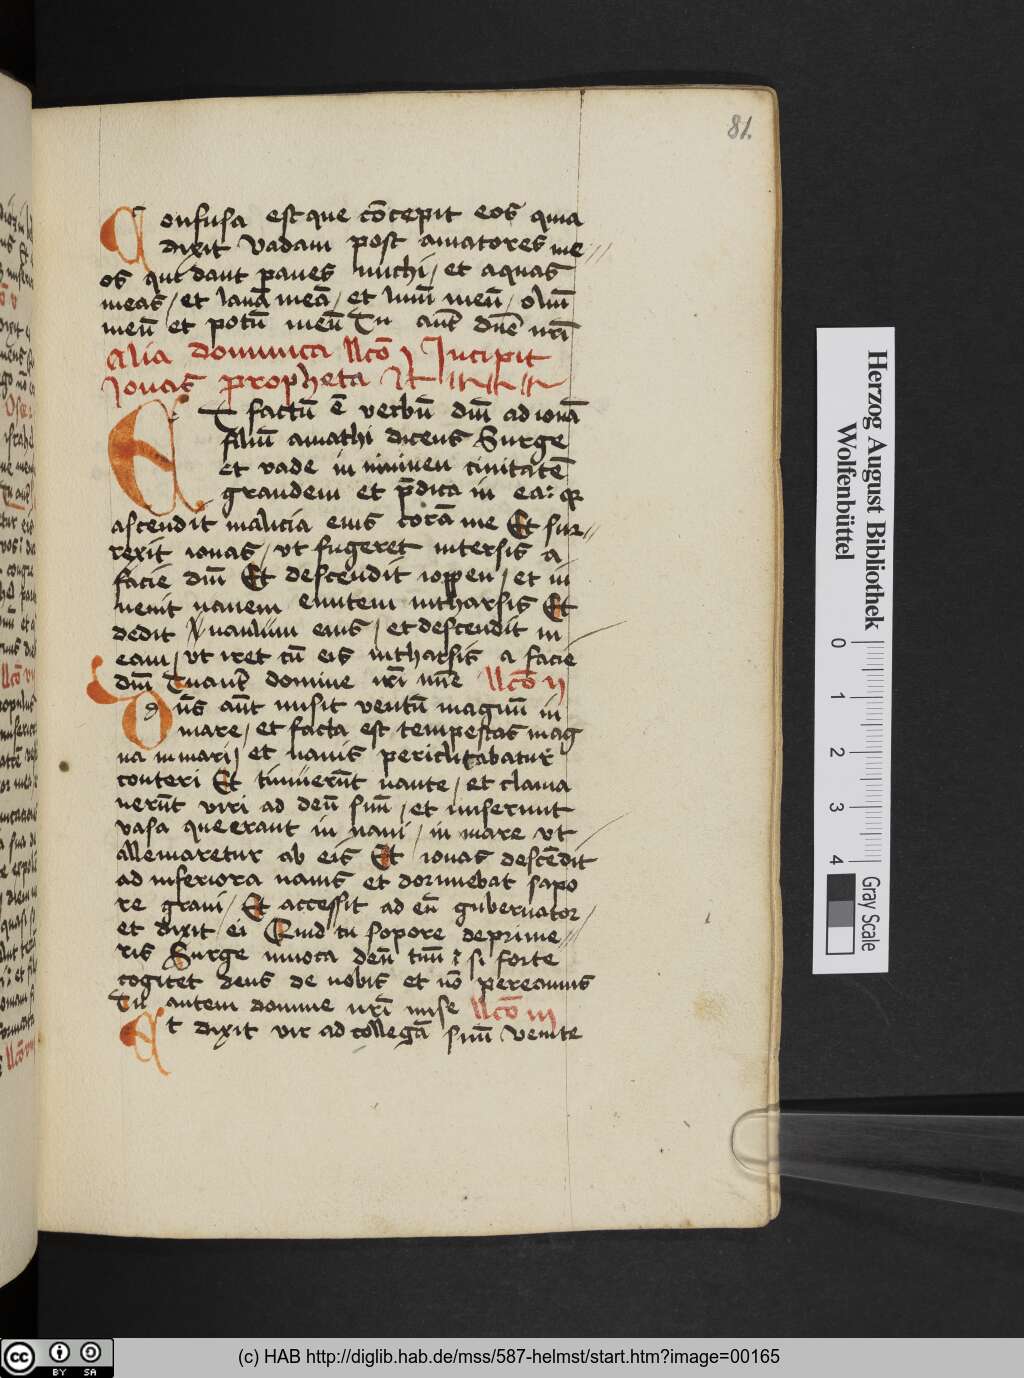 81.
Confusa est que cōcepit eos quia
dixit vadam post amatores me//
os qui dant panes michi / et aquas
meas / et lanā meā / et linū meū / oleū
meū et potū meū Tu autē dn̄e nr̄i
Alia dominica llcō j Incipit
Jonas propheta
ET factū ē verbū dn̄i ad ionā
filiū amathi dicens Surge
et vade in niniuen ciuitatē
grandem et p̄dica in ea: q
ascendit malicia eius corā me Et sur//
rexit ionas / vt fugeret intersis a
facie dn̄i Et descendit ioppen / et in
uenit nauem euntem intharsis Et
dedit naulum eius / et descendit in
eam / vt iret cū eis intharsis a facie
dn̄i Tu autē domine nr̄i mīe llcō ij
Dn̄s aūt misit ventū magnū in
mare / et facta est tempestas mag
na in mari / et nauis periclitabatur
conteri Et timuerūt naute / et clama
uerūt viri ad deū suū / et miserunt
vasa que erant in naui / in mare vt
alleuiaretur ab eis Et ionas descēdit
ad inferiora nauis et dormiebat sopo
re graui / Et accessit ad eū gubernator /
et dixit ei Quid tu sopore deprime//
ris Surge inuoca deū tuū : si forte
cogitet deus de nobis et nō pereamus
Tu autem domine nr̄i mise llcō iij
Et dixit vir ad collegā suū venite
Herzog August Bibliothek
Wolfenbüttel
0 1 2 3 4
Gray Scale
cc BY SA
(c) HAB http://diglib.hab.de/mss/587-helmst/start.htm?image=00165